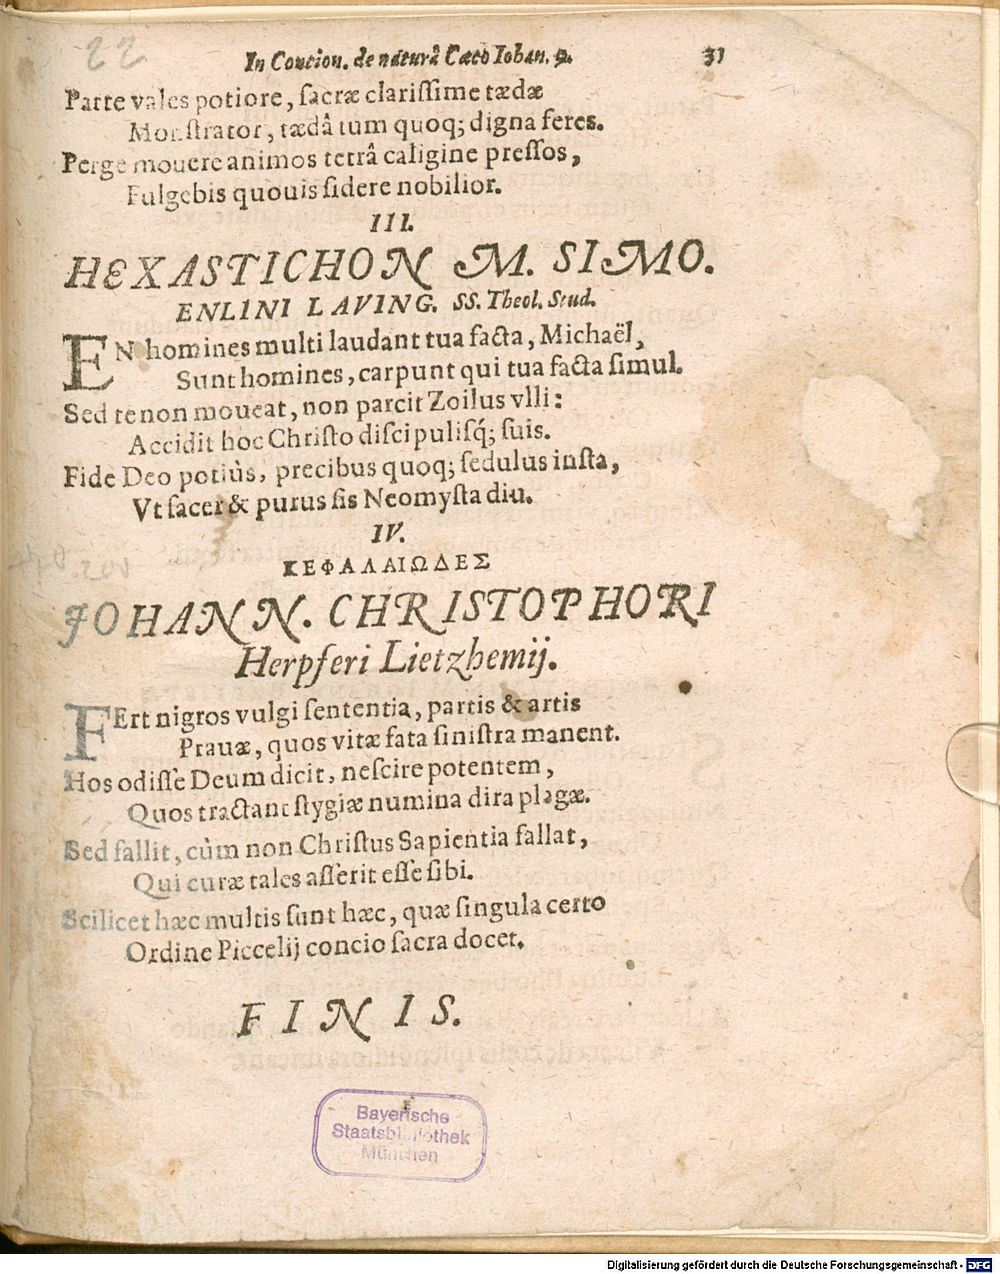 22
In Concion. de naturâ Cæco Iohan. 9. 31
Parte vales potiore, sacræ clarissime tædæ
Monstrator, tædâ tum quoq; digna feres.
Perge mouere animos tetrâ caligine pressos,
Fulgebis quouis sidere nobilior.
III.
HEXASTICHON M. SIMO.
ENLINI LAVING. SS. Theol. Stud.
EN homines multi laudant tua facta, Michaël,
Sunt homines, carpunt qui tua facta simul.
Sed te non moueat, non parcit Zoilus vlli:
Accidit hoc Christo discipulisq́; suis.
Fide Deo potiùs, precibus quoq; sedulus insta,
Vt sacer & purus sis Neomysta diu.
IV.
ΚΕΦΑΛΑΙΩΔΕΣ
JOHANN. CHRISTOPHORI
Herpferi Lietzhemij.
FErt nigros vulgi sententia, partis & artis
Prauæ, quos vitæ fata sinistra manent.
Hos odisse Deum dicit, nescire potentem,
Quos tractant stygiæ numina dira plagæ.
Sed fallit, cùm non Christus Sapientia fallat,
Qui curæ tales asserit esse sibi.
Scilicet hæc multis sunt hæc, quæ singula certo
Ordine Piccelij concio sacra docet.
FINIS.
Bayerische
Staatsbibliothek
München
Digitalisierung gefördert durch die Deutsche Forschungsgemeinschaft - DFG